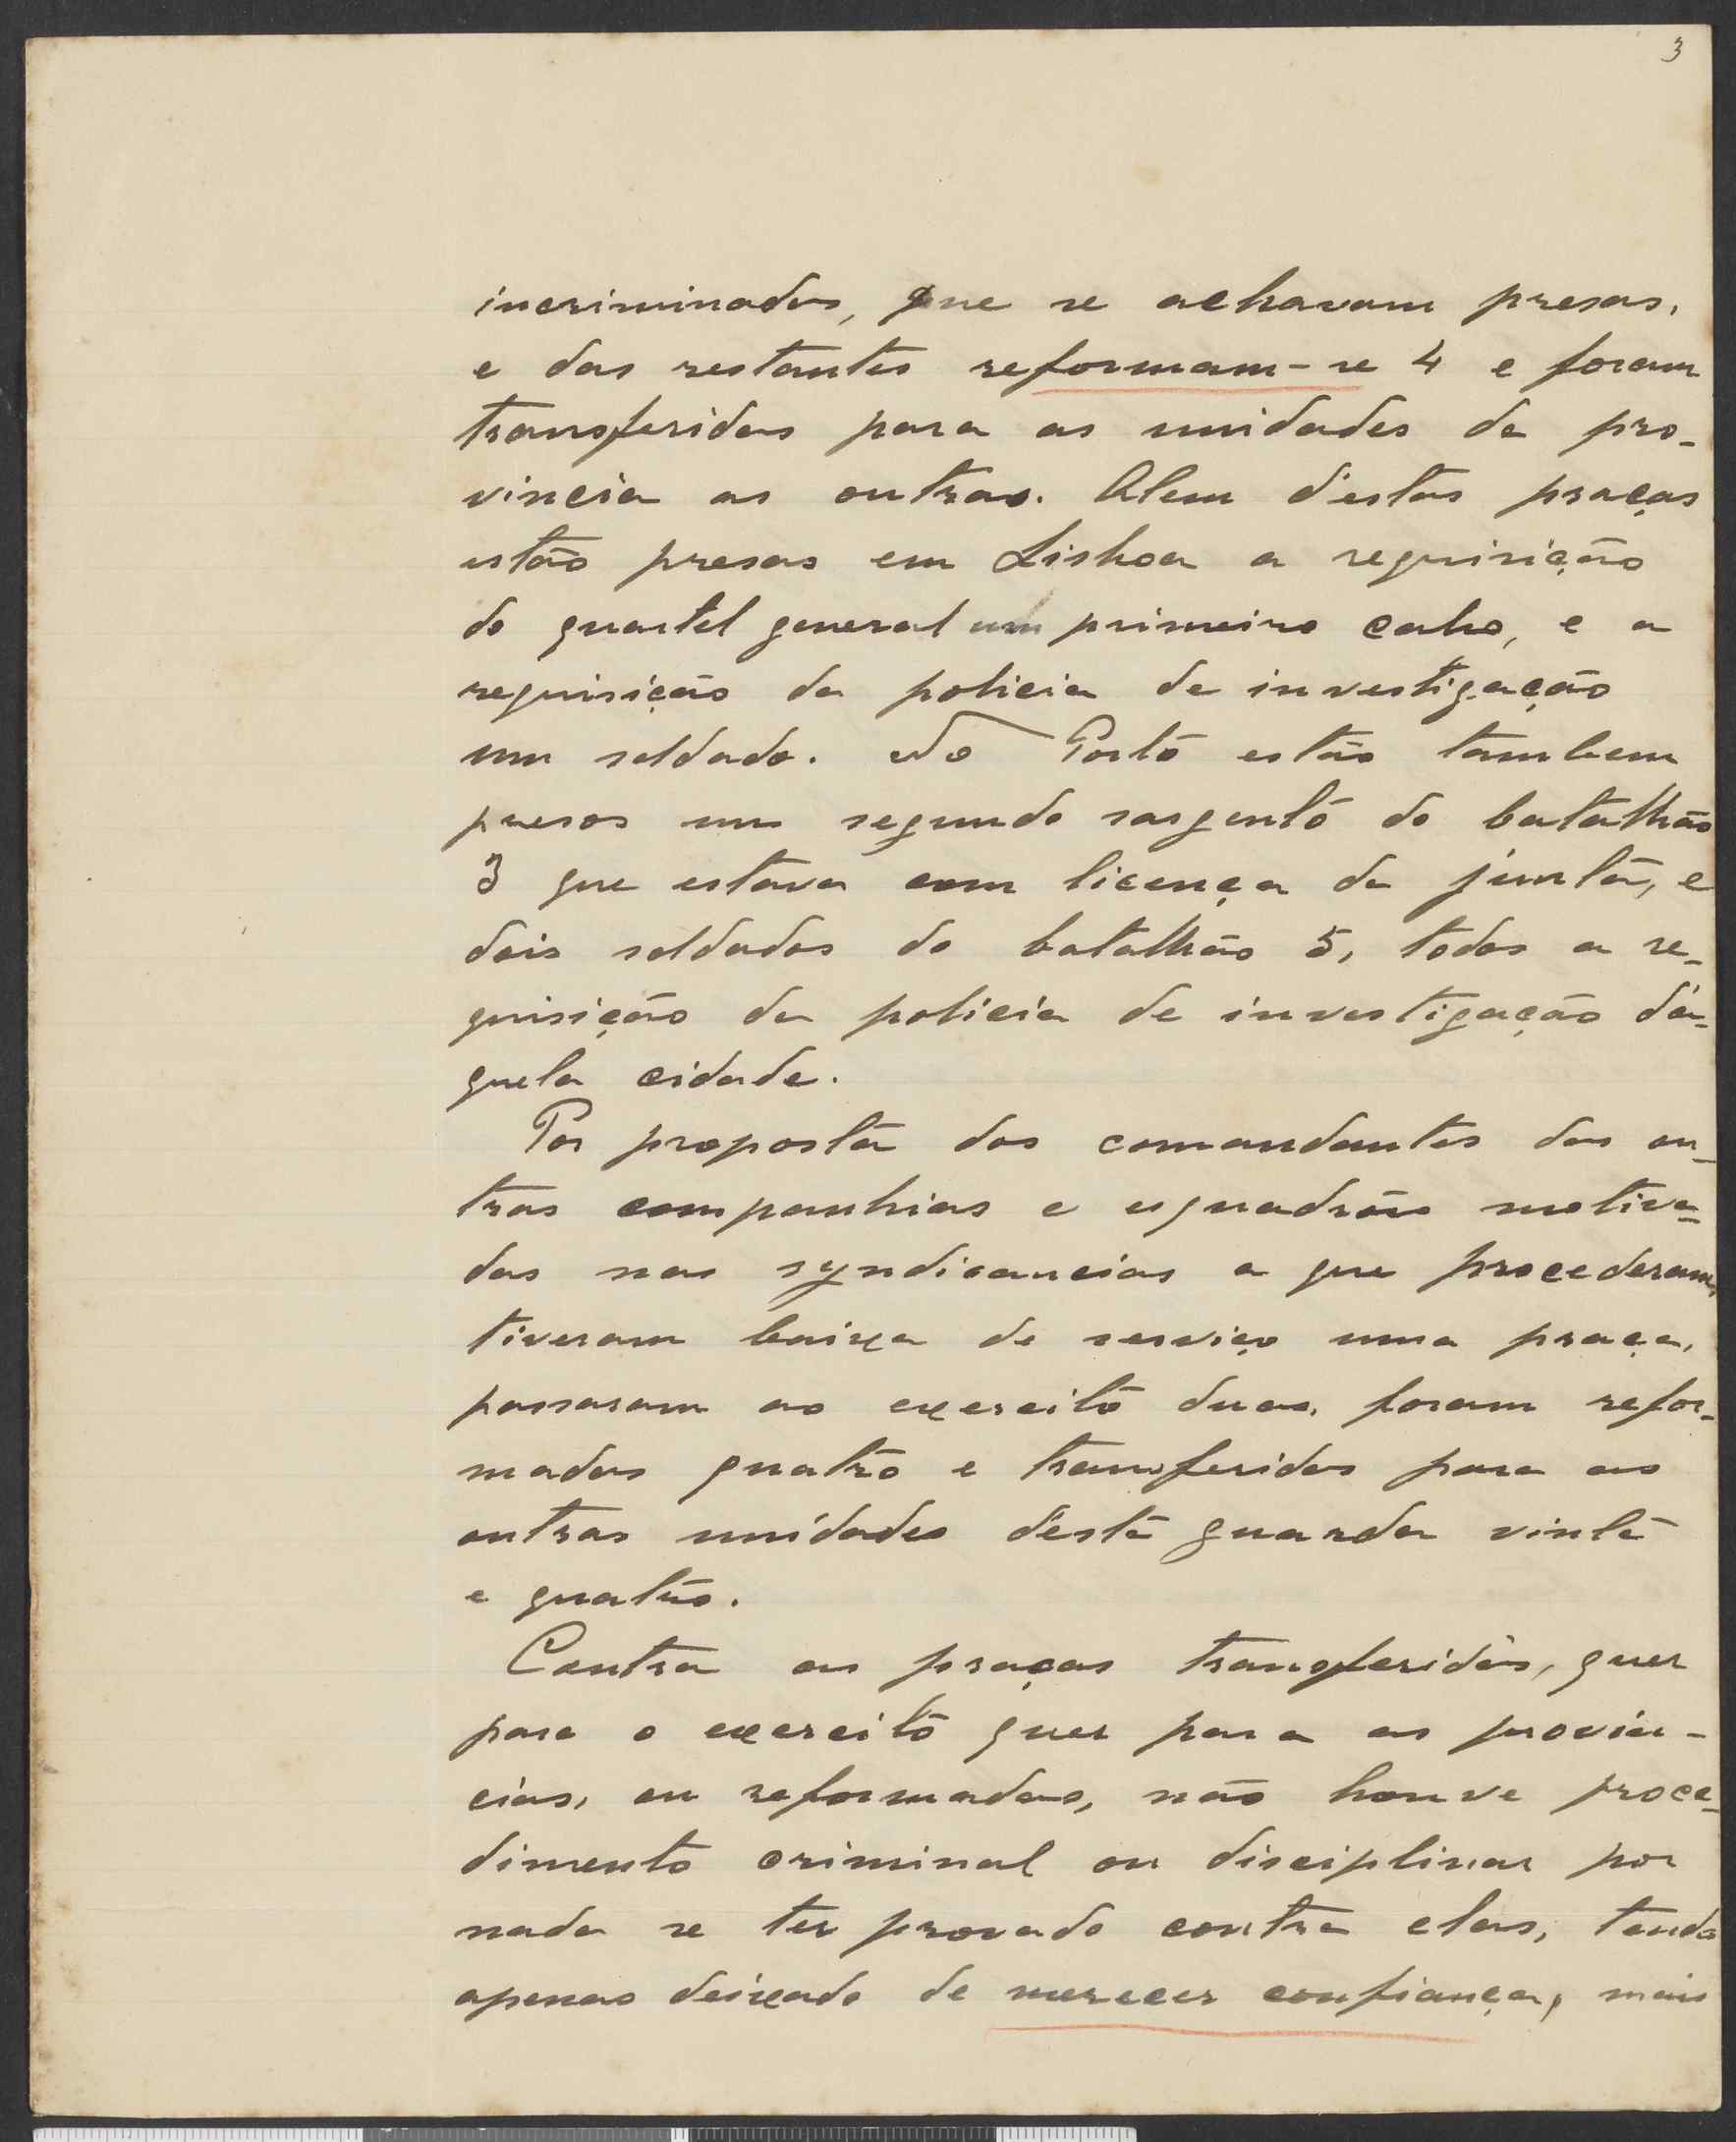 3
incriminadas, que se achavam presas,
e das restantes reformam-se 4 e foram
transferidas para as unidades da pro-
vincia as outras. Alem d'estas praças
estão presas em Lisboa a requisição
do quartel general um primeiro cabo, e a
requisição da policia de investigação
um soldado. No Porto estão tambem
presos um segundo sargento do batalhão
3 que estava com licença da junta, e
dois soldados do batalhão 5, todos a re-
quisição da policia de investigação d'a-
quela cidade.
Por proposta dos comandantes das ou-
tras companhias e esquadrões motiva-
das nas syndicancias a que procederam,
tiveram baixa de serviço uma praça,
passaram ao exercito duas, foram refor-
madas quatro e transferidas para as
outras unidades d'esta guarda vinte
e quatro.
Contra as praças transferidas, quer
para o exercito quer para as provin-
cias, ou reformadas, não houve proce-
dimento criminal ou disciplinar por
nada se ter provado contra elas, tendo
apenas deixado de merecer confiança, mais